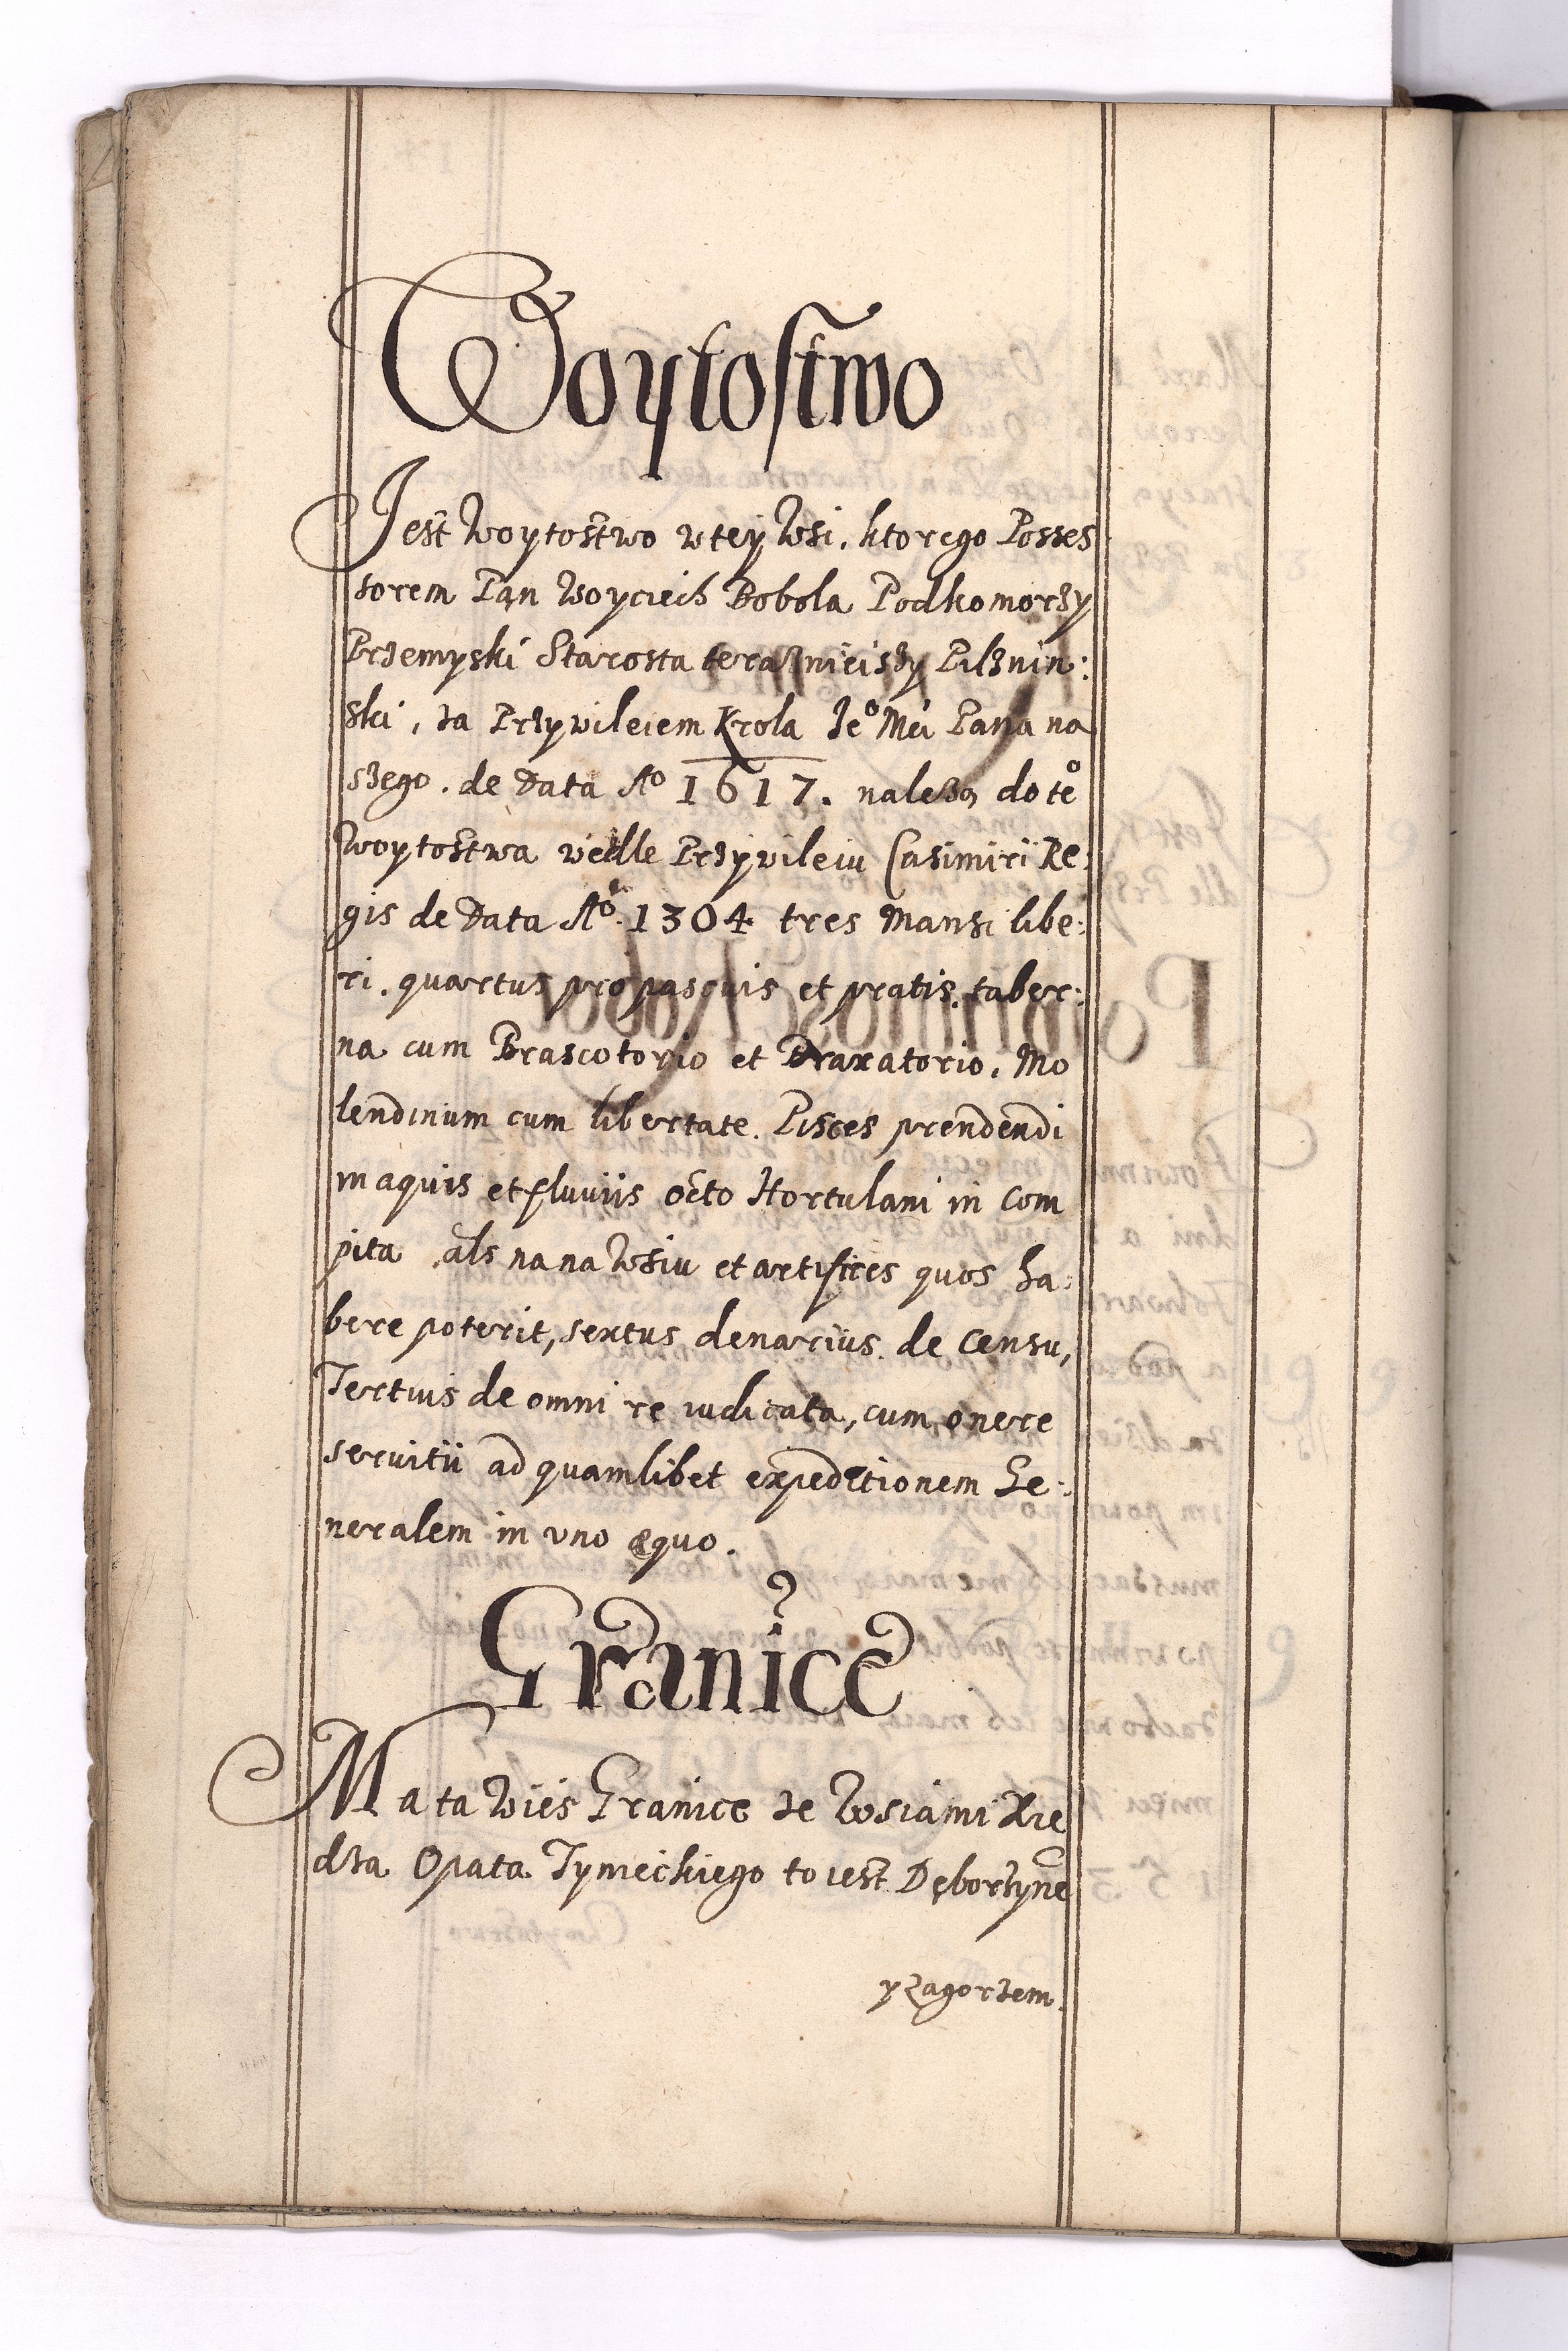 Woytostwo
Jest Woytostwo w tey Wsi, ktorego Posses
sorem Pan Woyciech Bobola Podkomorzy
Przemyski Starosta teraznieiszy Pilznin:
ski, za Przywileiem Krola Jeº Mći Pana na
szego. de Data Aº 1617. naleza do teº
Woytostwa wedle Przywileiu Casimiri Re:
gis de Data Aº. 1304 tres Mansi libe:
ri. quartus pro pascuis et pratis. taber:
na cum Brascotorio et Braxatorio, Mo
lendinum cum libertate. Pisces prendendi
in aquis et fluviis octo Hortulani in com
pita als na nawsiu et artifices quos ha:
bere poterit, sextus denarius de censu,
Tertius de omni re iudicata, cum onere
servitii ad quamlibet expeditionem Ge:
neralem in uno equo.
Granice
Ma ta Wies Granice ze Wsiami Xie
dza Opata Tynieckiego to iest Dęborzynē
y Zagorzem.